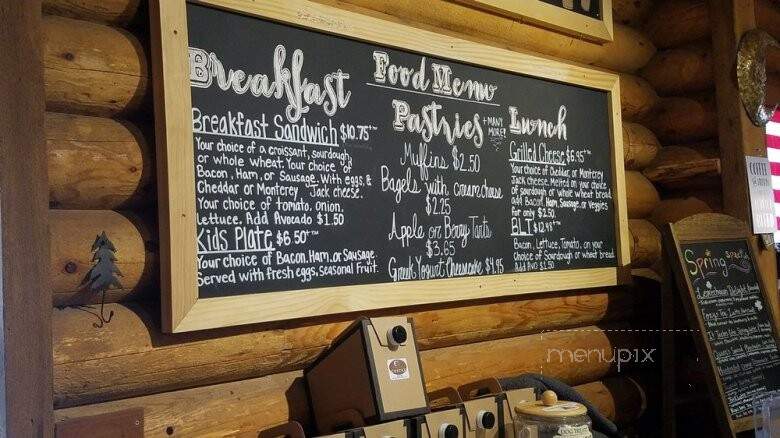 Food Menu
Breakfast
Breakfast Sandwich $10.75
Your choice of a croissant, sourdough,
or whole wheat. Your choice of
Bacon, Ham, or Sausage. With eggs, &
Cheddar or Monterey Jack cheese.
Your choice of tomato, onion,
lettuce, Add Avocado $1.50
Kids Plate $6.50
Your choice of Bacon, Ham, or Sausage
Served with fresh eggs, seasonal fruit.
Pastries + MANY MORE!
Muffins $2.50
Bagels with creamcheese
$2.25
Apple or Berry Tarts
$3.65
Greek Yogurt Cheesecake $4.95
Lunch
Grilled Cheese $6.95
Your choice of Cheddar, or Monterey
Jack cheese. Melted on your choice
of sourdough or whole wheat bread.
add Bacon, Ham, Sausage, or Veggies
For only $2.50.
BLT $12.48
Bacon, Lettuce, Tomato, on your
Choice of Sourdough or wheat bread
Add Avo $1.50
Spring
menupix